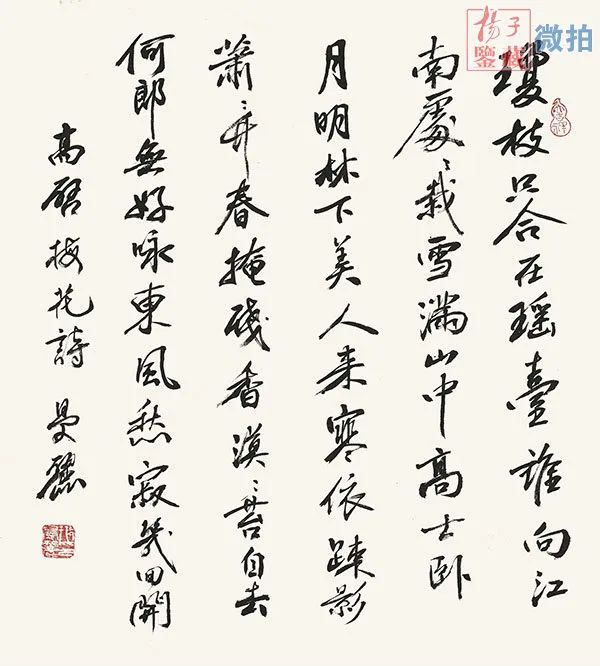 揚子
鑒藏
微拍
瓊枝只合在瑶臺誰向江
南處〻栽雪滿山中高士卧
月明林下美人来寒依踈影
蕭〻竹春掩殘香漠〻苔自去
何郎無好咏東風愁寂幾回開
高啓梅花詩 曼